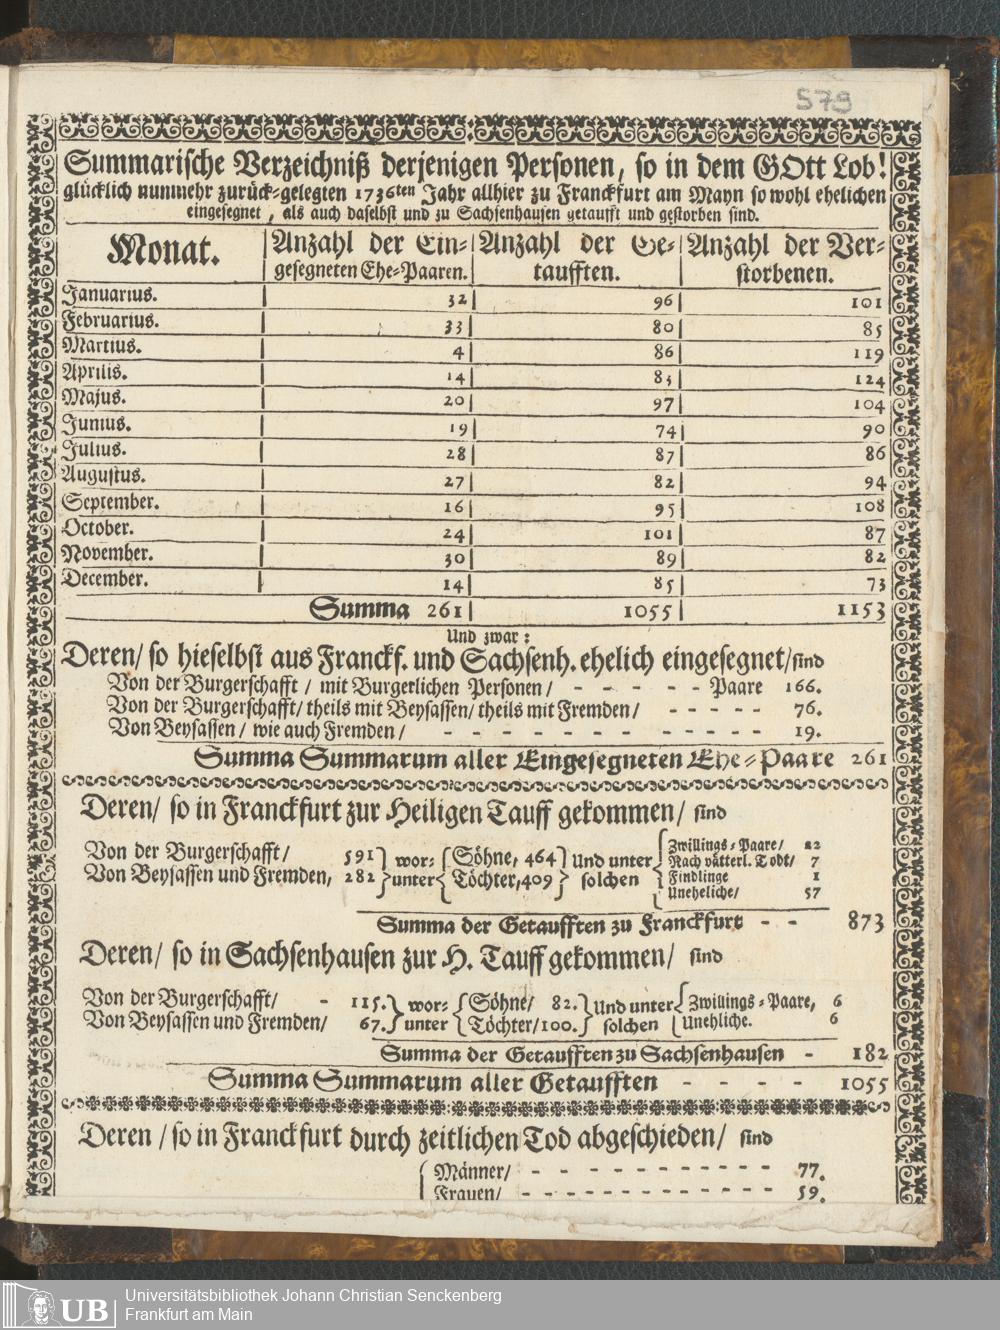 579
Summarische Verzeichniß derjenigen Personen, so in dem GOtt Lob!
glücklich nunmehr zurück-gelegten 1736ten Jahr allhier zu Franckfurt am Mayn so wohl ehelichen
eingesegnet, als auch daselbst und zu Sachsenhausen getaufft und gestorben sind.
Monat. Anzahl der Ein- Anzahl der Ge- Anzahl der Ver-
gesegneten Ehe-Paaren. taufften. storbenen.
Januarius. 32 96 101
Februarius. 33 80 85
Martius. 4 86 119
Aprilis. 14 83 124
Majus. 20 97 104
Junius. 19 74 90
Julius. 28 87 86
Augustus. 27 82 94
September. 16 95 108
October. 24 101 87
November. 30 89 82
December. 14 85 73
Summa 261 1055 1153
Und zwar:
Deren/ so hieselbst aus Franckf. und Sachsenh. ehelich eingesegnet/sind
Von der Burgerschafft / mit Burgerlichen Personen / - - - - - - Paare 166.
Von der Burgerschafft/ theils mit Beysassen/ theils mit Fremden/ - - - - - 76.
Von Beysassen / wie auch Fremden / - - - - - - - - - - - - - 19.
Summa Summarum aller Eingesegneten Ehe-Paare 261
Deren/ so in Franckfurt zur Heiligen Tauff gekommen/ sind
Von der Burgerschafft/ 591 wor- Söhne, 464 Und unter Zwillings-Paare/ 22
Von Beysassen und Fremden, 282 unter Töchter,409 solchen Nach vätterl. Todt/ 7
Findlinge 1
Uneheliche/ 57
Summa der Getaufften zu Franckfurt - - 873
Deren/ so in Sachsenhausen zur H. Tauff gekommen/ sind
Von der Burgerschafft/ - 115. wor- Söhne/ 82. Und unter Zwillings-Paare, 6
Von Beysassen und Fremden/ 67. unter Töchter/100. solchen Unehliche. 6
Summa der Getaufften zu Sachsenhausen - 182
Summa Summarum aller Getaufften - - - - 1055
Deren / so in Franckfurt durch zeitlichen Tod abgeschieden/ sind
Männer/ - - - - - - - - - - - 77.
Frauen/ - - - - - - - - - - - - 59.
UB Universitätsbibliothek Johann Christian Senckenberg
Frankfurt am Main